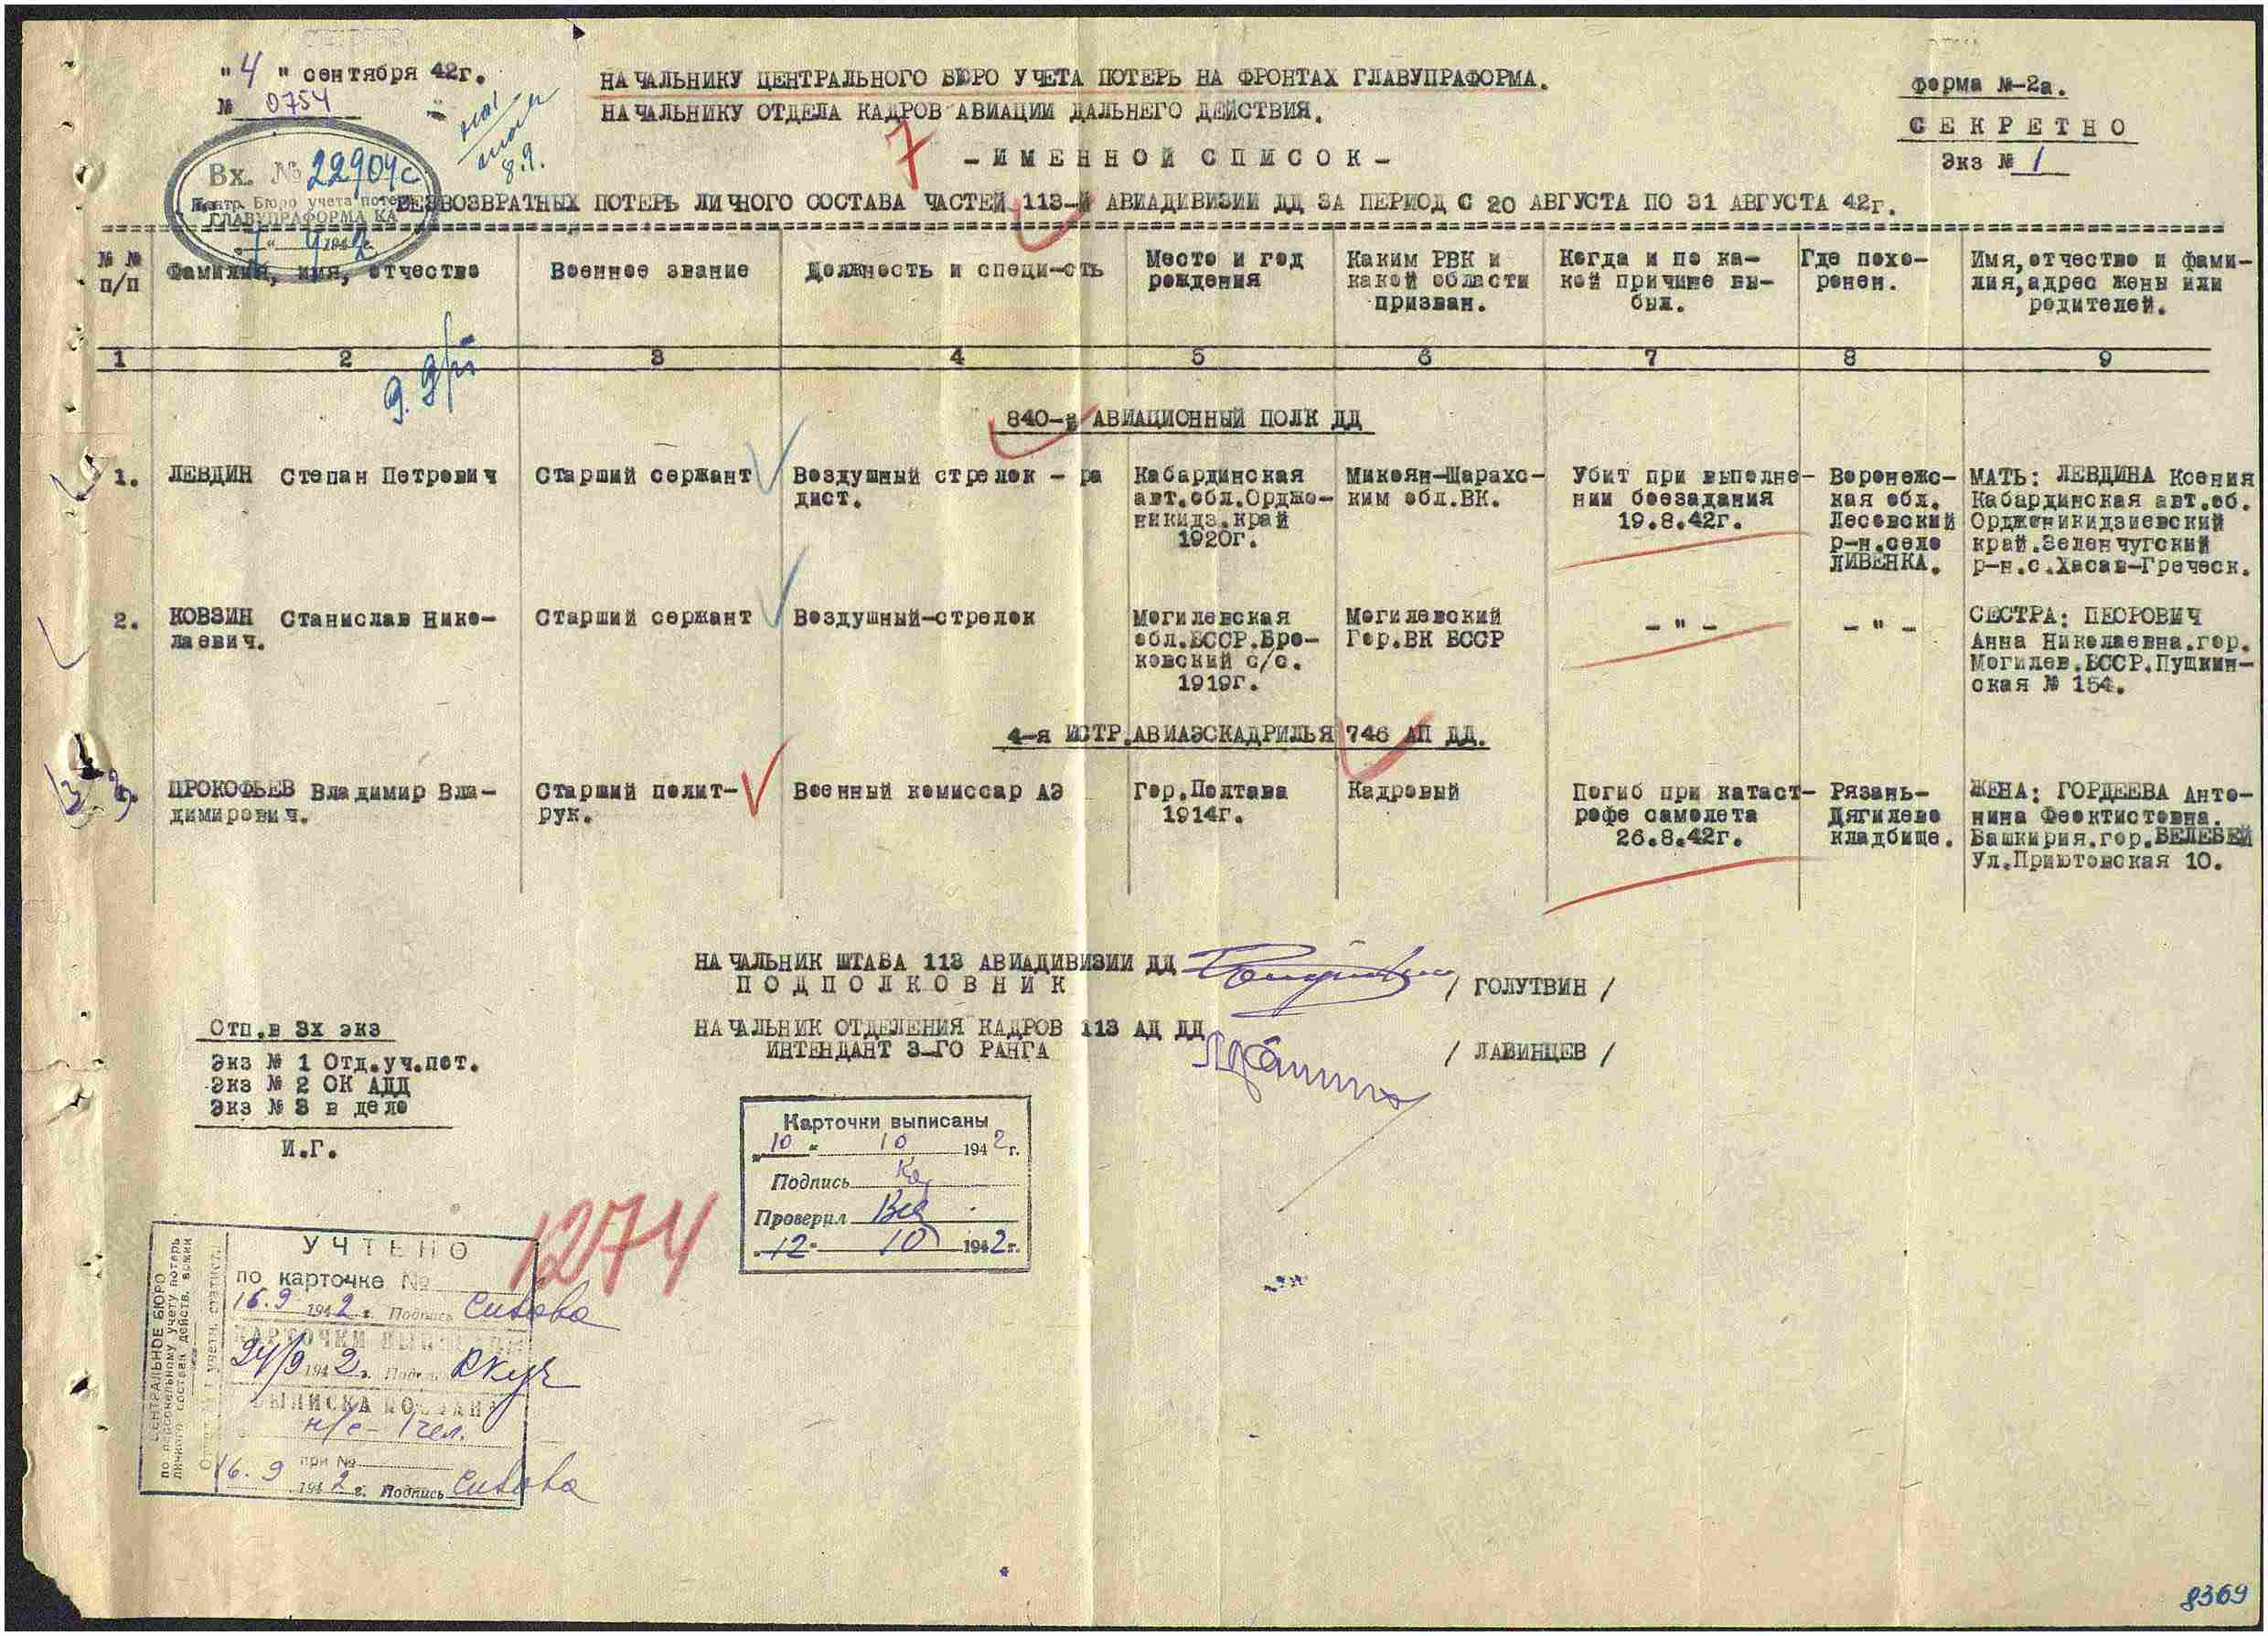 "4" сентября 42г.
№ 0754
НАЧАЛЬНИКУ ЦЕНТРАЛЬНОГО БЮРО УЧЕТА ПОТЕРЬ НА ФРОНТАХ ГЛАВУПРАФОРМА.
НАЧАЛЬНИКУ ОТДЕЛА КАДРОВ АВИАЦИИ ДАЛЬНЕГО ДЕЙСТВИЯ.
форма №-2а.
СЕКРЕТНО
Экз № 1
8.9.
7
- ИМЕННОЙ СПИСОК -
Вх. № 22904с
Центр. Бюро учета потерь
ГЛАВУПРАФОРМА КА
БЕЗВОЗВРАТНЫХ ПОТЕРЬ ЛИЧНОГО СОСТАВА ЧАСТЕЙ 113-й АВИАДИВИЗИИ ДД ЗА ПЕРИОД С 20 АВГУСТА ПО 31 АВГУСТА 42г.
№ №
п/п
Фамилия, имя, отчество
Военное звание
Должность и специ-сть
Место и год
рождения
Каким РВК и
какой области
призван.
Когда и по ка-
кой причине вы-
был.
Где похо-
ронен.
Имя, отчество и фами-
лия, адрес жены или
родителей.
1 2 3 4 5 6 7 8 9
840-й АВИАЦИОННЫЙ ПОЛК ДД
1.
ЛЕВДИН Степан Петрович
Старший сержант
Воздушный стрелок - ра
дист.
Кабардинская
авт.обл.Орджо-
никидз.край
1920г.
Микоян-Шарахс-
ким обл.ВК.
Убит при выполне-
нии боезадания
19.8.42г.
Воронежс-
кая обл.
Лесовский
р-н.село
ЛИВЕНКА.
МАТЬ: ЛЕВДИНА Ксения
Кабардинская авт.об.
Орджоникидзиевский
край.Зеленчугский
р-н.с.Хасав-Греческ.
2.
КОВЗИН Станислав Нико-
лаевич.
Старший сержант
Воздушный-стрелок
Могилевская
обл.БССР.Бро-
ковский с/с.
1919г.
Могилевский
Гор.ВК БССР
- " -
- " -
СЕСТРА: ПЕОРОВИЧ
Анна Николаевна.гор.
Могилев.БССР.Пушкин-
ская № 154.
4-я ИСТР.АВИАЭСКАДРИЛЬЯ 746 АП ДД.
3
ПРОКОФЬЕВ Владимир Вла-
димирович.
Старший полит-
рук.
Военный комиссар АЭ
Гор.Полтава
1914г.
Кадровый
Погиб при катаст-
рофе самолета
26.8.42г.
Рязань-
Дягилево
кладбище.
ЖЕНА: ГОРДЕЕВА Анто-
нина Феоктистовна.
Башкирия.гор.БЕЛЕБЕЙ
Ул.Приютовская 10.
НАЧАЛЬНИК ШТАБА 113 АВИАДИВИЗИИ ДД
ПОДПОЛКОВНИК
/ ГОЛУТВИН /
НАЧАЛЬНИК ОТДЕЛЕНИЯ КАДРОВ 113 АД ДД
ИНТЕНДАНТ 3-ГО РАНГА
/ ЛАВИНЦЕВ /
Отп.в 3х экз
Экз № 1 Отд.уч.пот.
Экз № 2 ОК АДД
Экз № 3 в дело
И.Г.
Карточки выписаны
"10" 10 1942г.
Подпись
Проверил
"12" 10 1942г.
1274
ЦЕНТРАЛЬНОЕ БЮРО
по персональному учету потерь
личного состава действ. армии
УЧТЕНО
по карточке №
16.9 1942 г. Подпись Сивова
КАРТОЧКИ ВЫПИСАНЫ
24/9 1942 г.
ВЫПИСКА ПОСЛАНА
н/с - 1 чел.
при №
16.9 1942 г. Подпись Сивова
8369